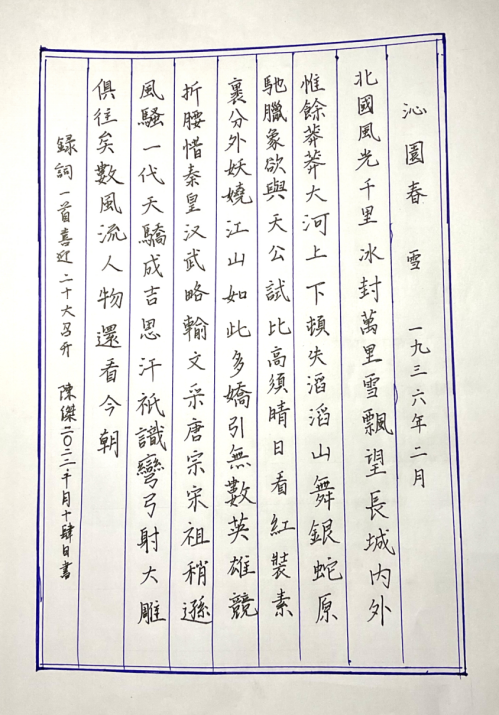 沁園春 雪 一九三六年二月
北國風光千里冰封萬里雪飄望長城內外
惟餘莽莽大河上下頓失滔滔山舞銀蛇原
馳臘象欲與天公試比高須晴日看紅裝素
裹分外妖嬈江山如此多嬌引無數英雄競
折腰惜秦皇汉武略輸文采唐宗宋祖稍遜
風騷一代天驕成吉思汗祇識彎弓射大雕
俱往矣數風流人物還看今朝
錄詞一首喜迎二十大召开 陳傑二〇二二年十月十肆日書